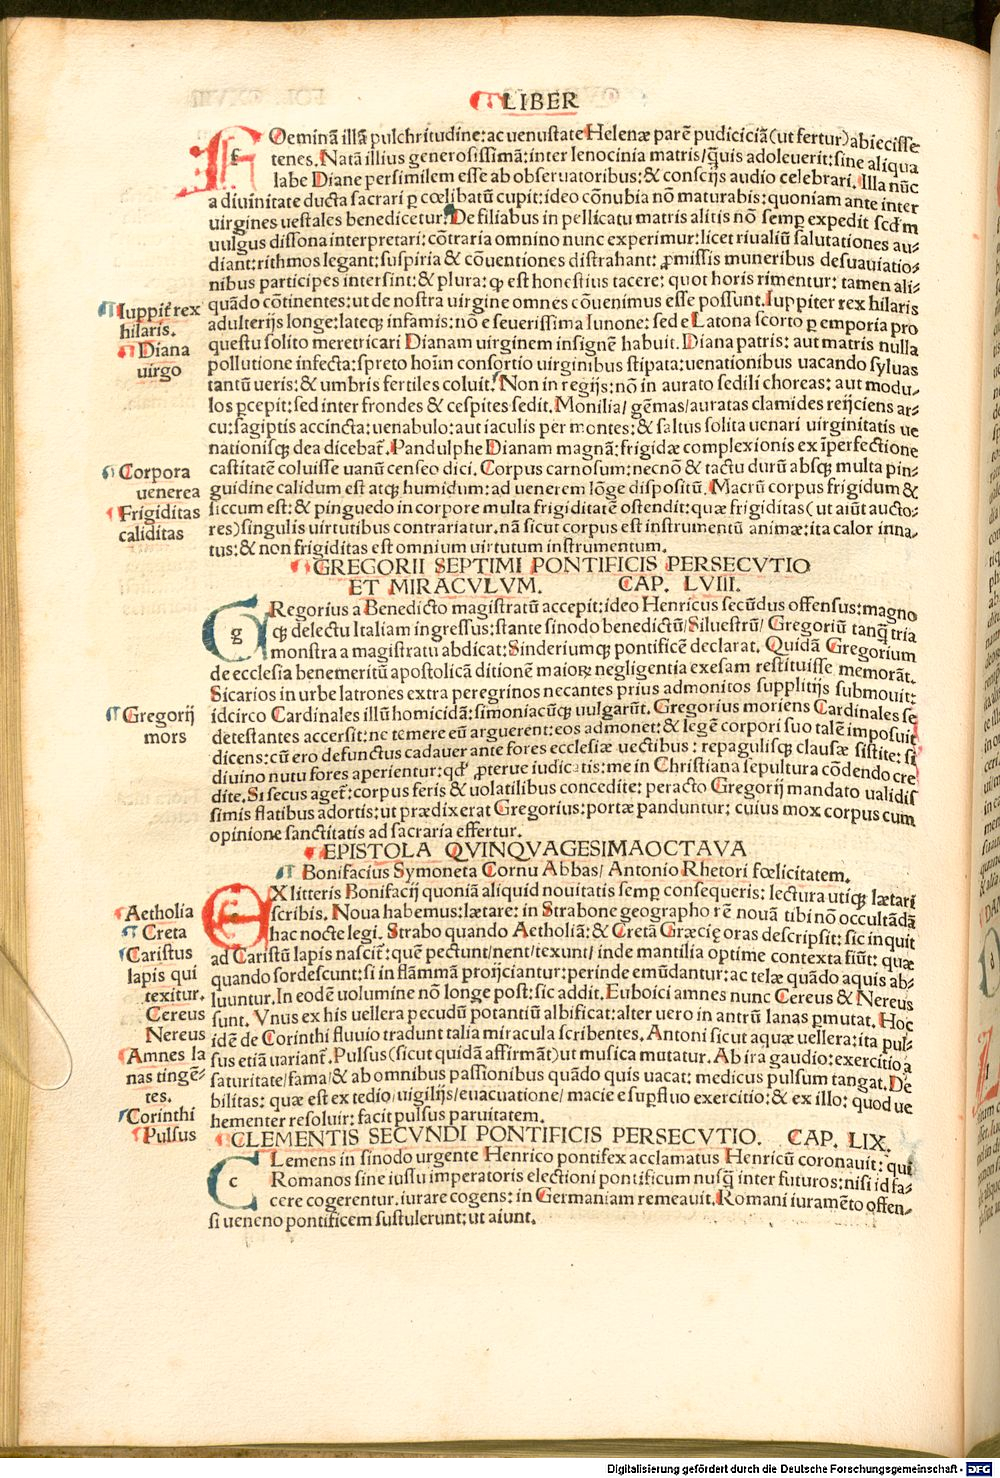 LIBER
FOeminā illā pulchritudine: ac uenustate Helenæ parē pudiciciā (ut fertur) abiecisse
tenes. Natā illius generosissimā: inter lenocinia matris/ q̄uis adoleuerit: sine aliqua
labe Diane persimilem esse ab obseruatoribus: & conscijs audio celebrari. Illa nūc
a diuinitate ducta sacrari ꝑ cœlibatū cupit: ideo cōnubia nō maturabis: quoniam ante inter
uirgines uestales benedicetur. De filiabus in pellicatu matris alitis nō semꝑ expedit scd̄m
uulgus dissona interpretari: cōtraria omnino nunc experimur: licet riualiū salutationes au-
diant: rithmos legant: suspiria & cōuentiones distrahant: ꝓmissis muneribus desuauiatio-
nibus participes intersint: & plura: ꝙ est honestius tacere: quot horis rimentur: tamen ali-
quādo cōtinentes: ut de nostra uirgine omnes cōuenimus esse possunt. Iuppiter rex hilaris
adulterijs longe: lateqꝫ infamis: nō e seuerissima Iunone: sed e Latona scorto ꝑ emporia pro
questu solito meretricari Dianam uirginem insignē habuit. Diana patris: aut matris nulla
pollutione infecta: spreto hoīm consortio uirginibus stipata: uenationibus uacando syluas
tantū ueris: & umbris fertiles coluit. Non in regijs: nō in aurato sedili choreas: aut modu-
los ꝑcepit: sed inter frondes & cespites sedit. Monilia/ gēmas/ auratas clamides reijciens ar-
cu: sagiptis accincta: uenabulo: aut iaculis per montes: & saltus solita uenari uirginitatis ue
nationisqꝫ dea dicebat̄. Pandulphe Dianam magnā: frigidæ complexionis ex īperfectione
castitatē coluisse uanū censeo dici. Corpus carnosum: necnō & tactu durū absqꝫ multa pin-
guidine calidum est atqꝫ humidum: ad uenerem lōge dispositū. Macrū corpus frigidum &
siccum est: & pinguedo in corpore multa frigiditatē ostendit: quæ frigiditas (ut aiūt aucto-
res) singulis uirtutibus contrariatur. nā sicut corpus est instrumentū animæ: ita calor inna-
tus: & non frigiditas est omnium uirtutum instrumentum.
Iuppit̄ rex
hilaris.
Diana
uirgo
Corpora
uenerea
Frigiditas
caliditas
GREGORII SEPTIMI PONTIFICIS PERSECVTIO
ET MIRACVLVM. CAP. LVIII.
GRegorius a Benedicto magistratū accepit: ideo Henricus secūdus offensus: magno
qꝫ delectu Italiam ingressus: stante sinodo benedictū/ Siluestrū/ Gregoriū tanq̄ tria
monstra a magistratu abdicat: Sinderiumqꝫ pontificē declarat. Quidā Gregorium
de ecclesia benemeritū apostolicā ditionē maioꝝ negligentia exesam restituisse memorāt.
Sicarios in urbe latrones extra peregrinos necantes prius admonitos supplitijs submouit:
idcirco Cardinales illū homicidā: simoniacūqꝫ uulgarūt. Gregorius moriens Cardinales se
detestantes accersit: ne temere eū arguerent: eos admonet: & legē corpori suo talē imposuit
dicens: cū ero defunctus cadauer ante fores ecclesiæ uectibus: repagulisqꝫ clausæ sistite: si
diuino nutu fores aperientur: qd̄ ꝓterue iudicatis: me in Christiana sepultura cōdendo cre
dite. Si secus aget̄: corpus feris & uolatilibus concedite: peracto Gregorij mandato ualidis
simis flatibus adortis: ut prædixerat Gregorius: portæ panduntur: cuius mox corpus cum
opinione sanctitatis ad sacraria effertur.
Gregorij
mors
EPISTOLA QVINQVAGESIMAOCTAVA
Bonifacius Symoneta Cornu Abbas/ Antonio Rhetori fœlicitatem.
EX litteris Bonifacij quoniā aliquid nouitatis semꝑ consequeris: lectura utiqꝫ lætari
scribis. Noua habemus: lætare: in Strabone geographo rē nouā tibi nō occultādā
hac nocte legi. Strabo quando Aetholiā: & Cretā Græcię oras descripsit: sic inquit
ad Caristū lapis nascit̄: quē pectunt/ nent/ texunt/ inde mantilia optime contexta fiūt: quæ
quando sordescunt: si in flāmmā proijciantur: perinde emūdantur: ac telæ quādo aquis ab-
luuntur. In eodē uolumine nō longe post: sic addit. Euboici amnes nunc Cereus & Nereus
sunt. Vnus ex his uellera pecudū potantiū albificat: alter uero in antrū lanas ꝑmutat. Hoc
idē de Corinthi fluuio tradunt talia miracula scribentes. Antoni sicut aquæ uellera: ita pul-
sus etiā uariant̄. Pulsus (sicut quidā affirmāt) ut musica mutatur. Ab ira gaudio: exercitio a
saturitate/ fama/ & ab omnibus passionibus quādo quis uacat: medicus pulsum tangat. De
bilitas: quæ est ex tedio/ uigilijs/ euacuatione/ macie e suꝑfluo exercitio: & ex illo: quod ue
hementer resoluir: facit pulsus paruitatem.
Aetholia
Creta
Caristus
lapis qui
texitur.
Cereus
Nereus
Amnes la
nas tingē-
tes.
Corinthi
Pulsus
CLEMENTIS SECVNDI PONTIFICIS PERSECVTIO. CAP. LIX.
CLemens in sinodo urgente Henrico pontifex acclamatus Henricū coronauit: qui
Romanos sine iussu imperatoris electioni pontificum nusq̄ inter futuros: nisi id fa-
cere cogerentur. iurare cogens: in Germaniam remeauit. Romani iuramēto offen-
si ueneno pontificem sustulerunt: ut aiunt.
Digitalisierung gefördert durch die Deutsche Forschungsgemeinschaft - DFG